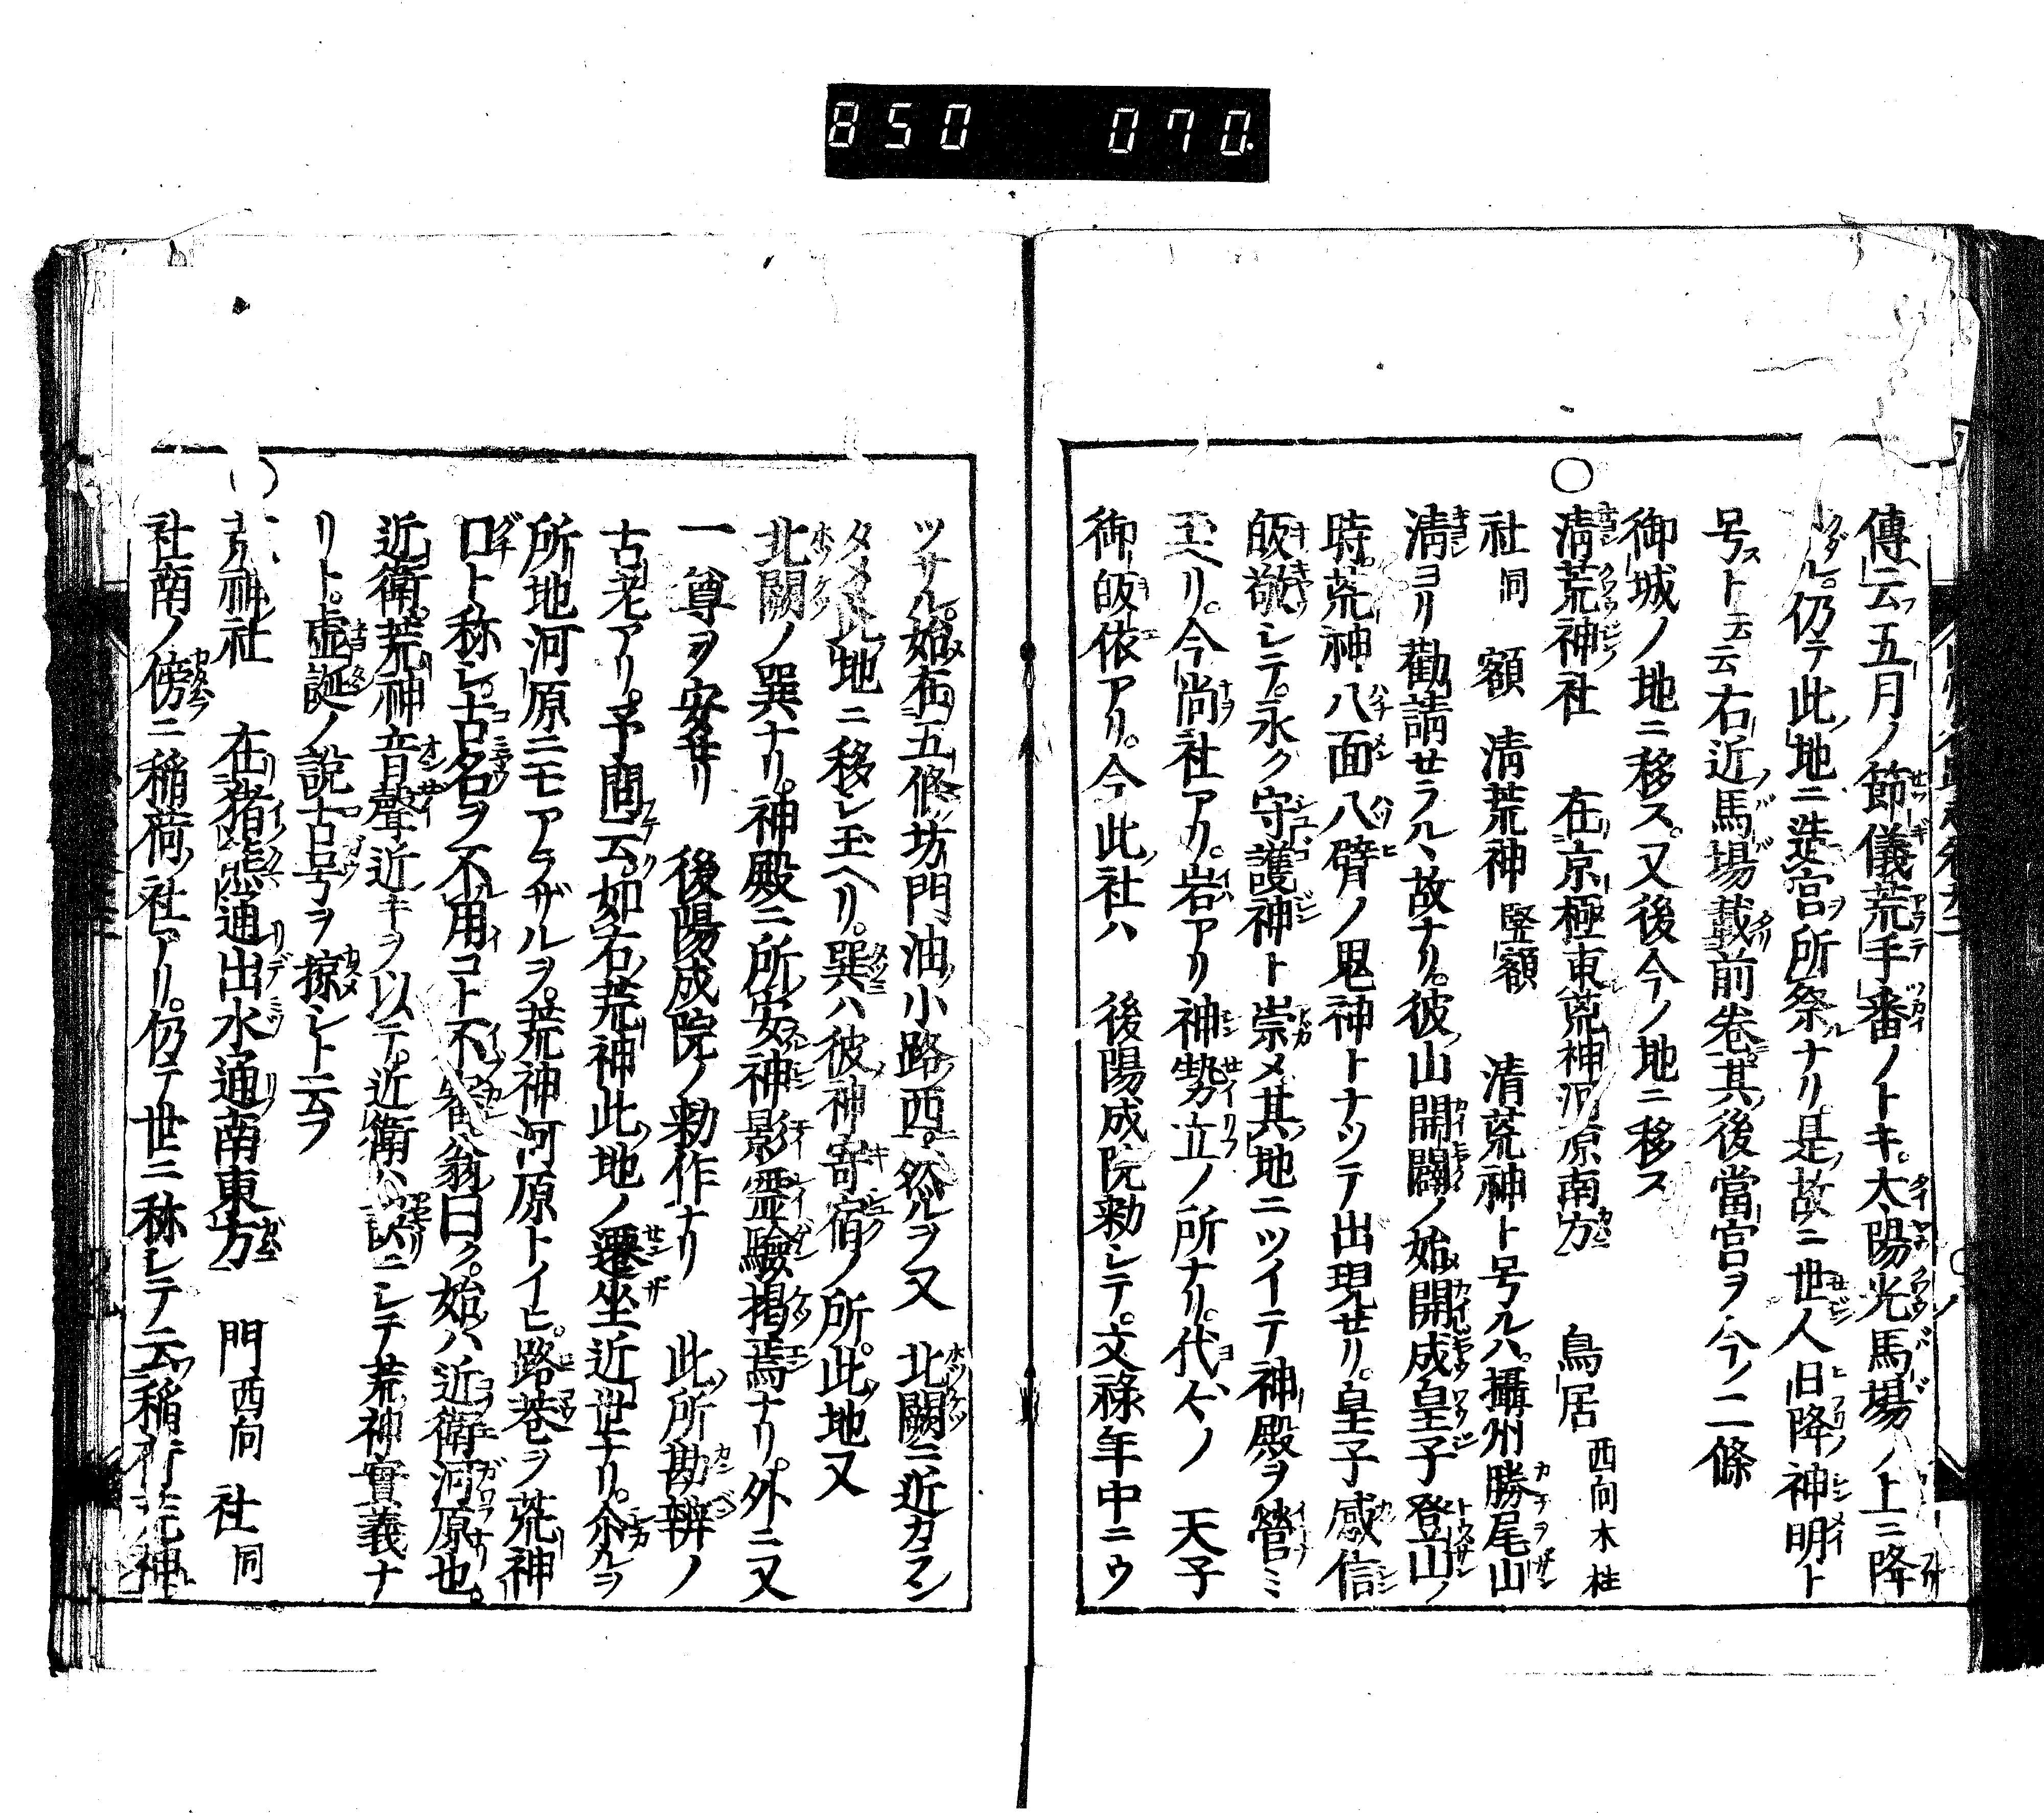 850 070.
傳云五月ノ節儀荒手番ノトキ。太陽光馬場ノ上ニ降
ダル。仍テ此地ニ造宮所祭ナリ是故ニ世人日降神明ト
号スト云云右近馬場載前巻其後當宮ヲ今ノ二條
御城ノ地ニ移ス。又後今ノ地ニ移ス
○清荒神社 在京極東荒神河原南方 鳥居 西向木柱
社 同 額 清荒神 竪額 清荒神ト号ルハ。攝州勝尾山
清ヨリ勸請セラルヽ故ナリ。彼山開闢ノ始開成皇子登山ノ
時。荒神八面八臂ノ鬼神トナツテ出現セリ。皇子感信
皈敬シテ。永ク守護神ト崇メ其地ニツイテ神殿ヲ營ミ
玉ヘリ。今尚社アリ。岩アリ神勢立ノ所ナリ。代々ノ 天子
御皈依アリ。今此社ハ 後陽成院勅シテ。文祿年中ニウ
ツサル。始在五條坊門油小路西。然ルヲ又 北闕ニ近カラン
タメ此地ニ移シ玉ヘリ。巽ハ彼神寄宿ノ所。此地又
北闕ノ巽ナリ。神殿ニ所安神影霊驗掲焉ナリ。外ニ又
一尊ヲ安セリ 後陽成院ノ勅作ナリ 此所勘辨ノ
古老アリ。予問云。如右荒神此地ノ遷坐近世ナリ。尒ルヲ
所地河原ニモアラザルヲ。荒神河原トイヒ。路巷ヲ荒神
口ト称シ。古名ヲ不用コト不審。翁曰ク。始ハ近衛河原也。
近衛。荒神音聲近キヲ以テ。近衛ハ訛ニシテ荒神實義ナ
リト。虚誕ノ説古号ヲ掠シト云フ
荒神社 在猪熊通出水通南東方 門 西向 社 同
社南ノ傍ニ稲荷ノ社アリ。仍テ世ニ称シテ云稲荷荒神